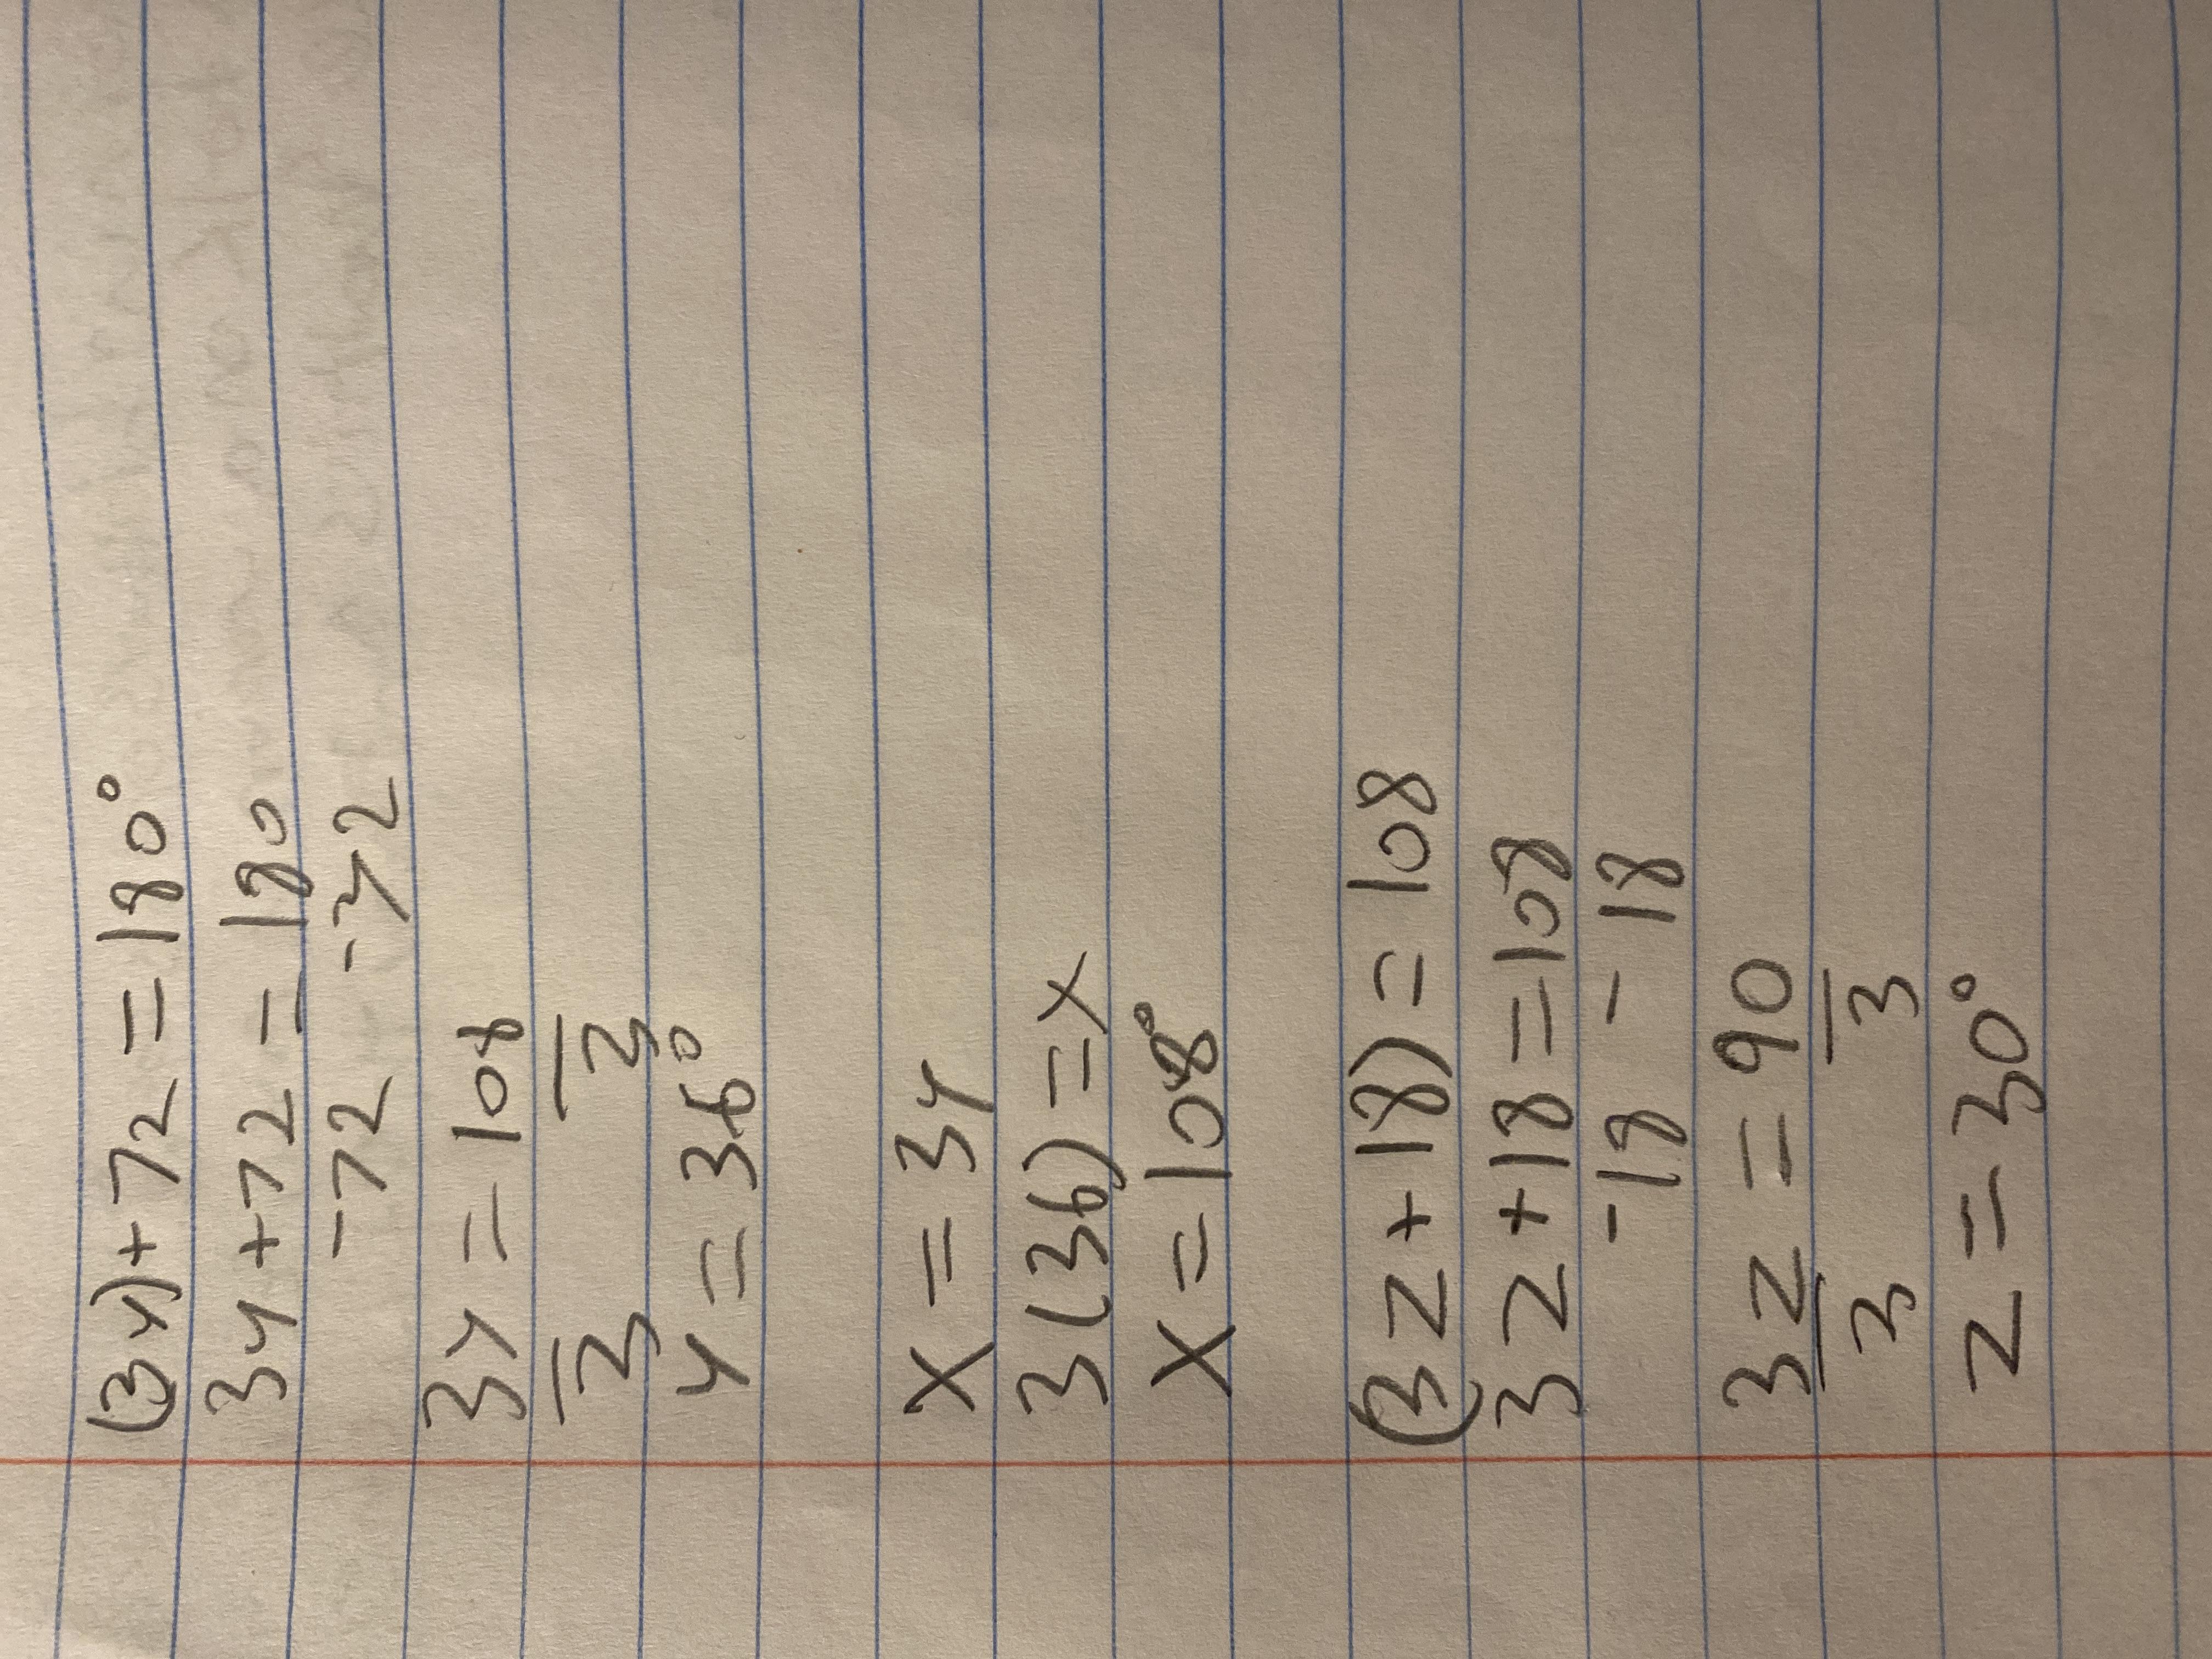 (3y)+72=180°
3y+72=180
-72 -72
3y=108
3 3
y=36°
x=3y
3(36)=x
x=108°
(3z+18)=108
3z+18=108
-18 -18
3z=90
3 3
z=30°